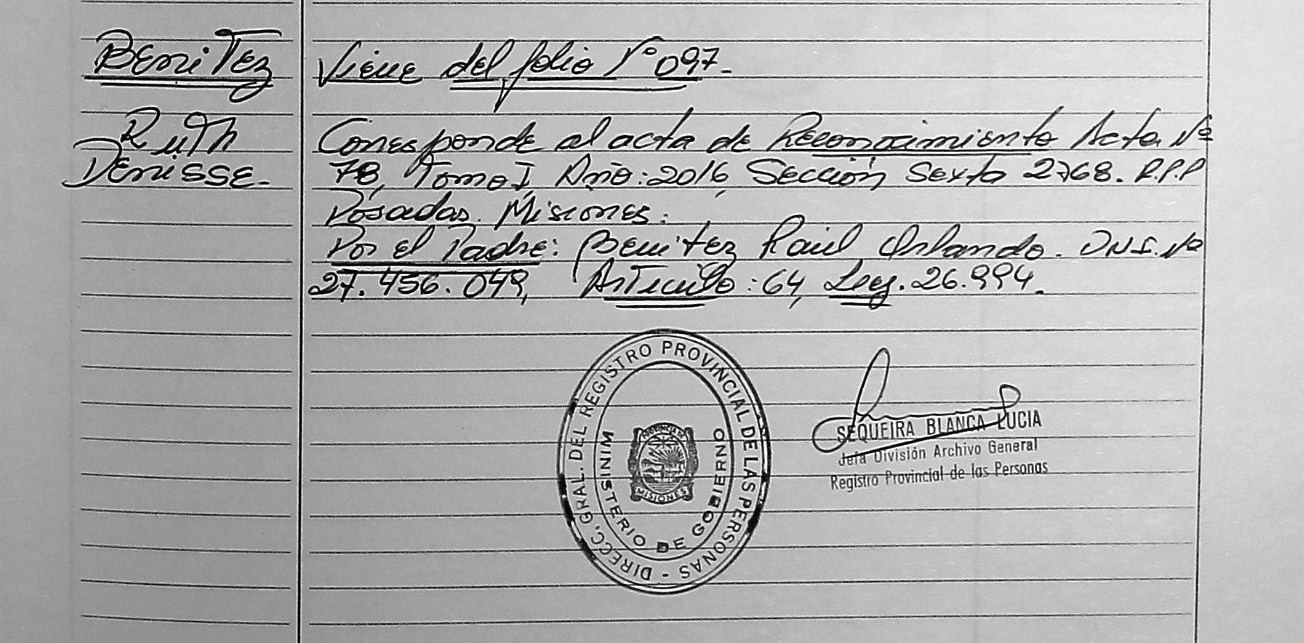 Benitez
Ruth
Denisse.-
Viene del folio Nº 097.-
Corresponde al acta de Reconocimiento Acta Nº
78, Tomo I, Año: 2016, Sección Sexta 2768. R.P.P
Posadas. Misiones.
Por el Padre: Benitez Raúl Orlando. D.N.I. Nº
27.456.049, Artículo: 64, Ley. 26.994.
DIRECC. GRAL. DEL REGISTRO PROVINCIAL DE LAS PERSONAS -
MINISTERIO DE GOBIERNO
MISIONES
SEQUEIRA BLANCA LUCIA
Jefa División Archivo General
Registro Provincial de las Personas